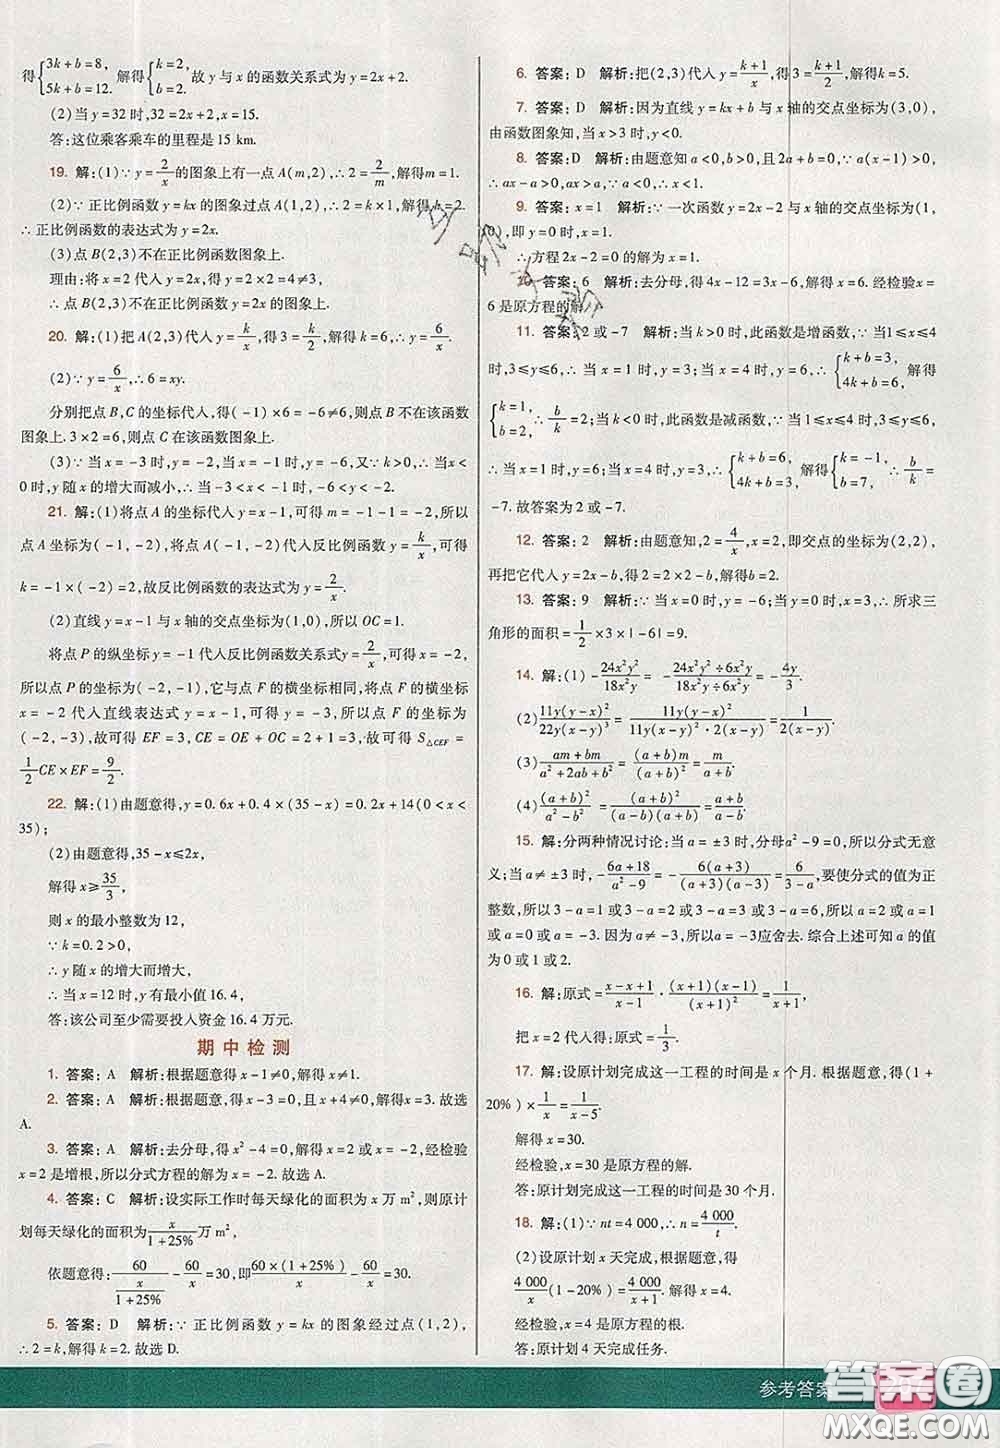 得{3k+b=8, 5k+b=12. 解得{k=2, b=2. 故 y 与 x 的函数关系式为 y=2x+2.
(2)当 y=32 时,32=2x+2,x=15.
答:这位乘客乘车的里程是 15 km.
19. 解:(1)∵ y=2/x 的图象上有一点 A(m,2),∴ 2=2/m,解得m=1.
(2)∵ 正比例函数 y=kx 的图象过点 A(1,2),∴ 2=1×k,解得 k=2.
∴ 正比例函数的表达式为 y=2x.
(3)点 B(2,3)不在正比例函数图象上.
理由:将 x=2 代入 y=2x,得 y=2×2=4≠3,
∴ 点 B(2,3)不在正比例函数 y=2x 的图象上.
20. 解:(1)把 A(2,3)代入 y=k/x,得 3=k/2,解得 k=6,∴ y=6/x.
(2)∵ y=6/x,∴6=xy.
分别把点 B,C 的坐标代入,得(-1)×6=-6≠6,则点 B 不在该函数
图象上.3×2=6,则点 C 在该函数图象上.
(3)∵ 当 x=-3 时,y=-2,当 x=-1 时,y=-6,又∵ k>0,∴ 当x<
0时,y 随 x 的增大而减小,∴ 当-3<x<-1 时,-6<y<-2.
21. 解:(1)将点 A 的坐标代入 y=x-1,可得 m=-1-1=-2,所以
点 A 坐标为(-1,-2),将点 A(-1,-2)代入反比例函数 y=k/x,可得
k=-1×(-2)=2,故反比例函数的表达式为 y=2/x.
(2)直线 y=x-1 与 x 轴的交点坐标为(1,0),所以 OC=1.
将点 P 的纵坐标 y=-1 代入反比例函数关系式y=2/x,可得 x=-2,
所以点 P 的坐标为(-2,-1),它与点 F 的横坐标相同,将点 F 的横坐标
x=-2 代入直线表达式 y=x-1,可得 y=-3,所以点 F 的坐标为
(-2,-3),故可得 EF=3,CE=OE+OC=2+1=3,故可得 S△CEF=
1/2CE×EF=9/2.
22. 解:(1)由题意得,y=0.6x+0.4×(35-x)=0.2x+14(0<x<
35);
(2)由题意得,35-x≤2x,
解得 x≥35/3,
则 x 的最小整数为 12,
∵ k=0.2>0,
∴ y 随 x 的增大而增大,
∴ 当 x=12 时,y 有最小值 16.4,
答:该公司至少需要投入资金 16.4 万元.
期中检测
1. 答案: A 解析:根据题意得 x-1≠0,解得 x≠1.
2. 答案: A 解析:根据题意,得 x-3=0,且 x+4≠0,解得x=3.故选
A.
3. 答案: A 解析:去分母,得 x²-4=0,解得 x=2 或 x=-2,经检验
x=2 是增根,所以分式方程的解为 x=-2.故选 A.
4. 答案: C 解析:设实际工作时每天绿化的面积为 x 万 m²,则原计
划每天绿化的面积为x/(1+25%)万 m²,
依题意得:60/(x/(1+25%))-60/x=30,即60×(1+25%)/x-60/x=30.
5. 答案: D 解析:∵ 正比例函数 y=kx 的图象经过点(1,2),
∴2=k,解得 k=2.故选 D.
6. 答案: D 解析:把(2,3)代入 y=(k+1)/x,得3=(k+1)/2,解得 k=5.
7. 答案: D 解析:因为直线 y=kx+b 与 x 轴的交点坐标为(3,0),
由函数图象知,当 x>3 时,y<0.
8. 答案: D 解析:由题意知 a<0,b>0,且 2a+b=0,∵ a(x-1)>0,
∴ ax-a>0,ax>a,∴ x<1.
9. 答案: x=1 解析:∵ 一次函数 y=2x-2 与 x 轴的交点坐标为(1,
0),即 y=0 时,x=1.
∴ 方程 2x-2=0 的解为 x=1.
答案: 6 解析:去分母,得 4x-12=3x-6,解得 x=6.经检验x=
6 是原方程的解.
11. 答案: 2 或-7 解析:当 k>0 时,此函数是增函数,∵ 当1≤x≤4
时,3≤y≤6,∴ 当 x=1 时,y=3;当 x=4 时,y=6,∴{k+b=3, 4k+b=6, 解得
{k=1, b=2, ∴ b/k=2;当 k<0 时,此函数是减函数,∵ 当 1≤x≤4 时,3≤y≤6,
∴ 当 x=1 时,y=6;当 x=4 时,y=3,∴{k+b=6, 4k+b=3, 解得{k=-1, b=7, ∴ b/k=
-7.故答案为 2 或-7.
12. 答案: 2 解析:由题意知,2=4/x,x=2,即交点的坐标为(2,2),
再把它代入 y=2x-b,得 2=2×2-b,解得b=2.
13. 答案: 9 解析:∵ x=0 时,y=-6;当 y=0 时,x=3,∴ 所求三
角形的面积=1/2×3×|-6|=9.
14. 解:(1)-24x²y²/18x³y=-(24x²y²÷6x²y)/(18x³y÷6x²y)=-4y/3x.
(2)11y(y-x)²/22y(x-y)³=11y(y-x)²/(11y(x-y)²·2(x-y))=1/(2(x-y)).
(3)(am+bm)/(a²+2ab+b²)=m(a+b)/(a+b)²=m/(a+b).
(4)(a+b)²/(a²-b²)=(a+b)²/((a-b)(a+b))=(a+b)/(a-b).
15. 解:分两种情况讨论:当 a=±3 时,分母a²-9=0,所以分式无意
义;当 a≠±3 时,-(6a+18)/(a²-9)=-6(a+3)/((a+3)(a-3))=6/(3-a),要使分式的值为正
整数,所以 3-a=1 或 3-a=2 或 3-a=3 或 3-a=6,所以 a=2 或 a=1
或 a=0 或 a=-3.因为 a≠-3,所以 a=-3应舍去.综合上述可知 a 的值
为 0 或 1 或 2.
16. 解:原式=(x-x+1)/(x-1)·(x+1)(x-1)/(x+1)²=1/(x+1),
把 x=2 代入得:原式=1/3.
17. 解:设原计划完成这一工程的时间是 x 个月.根据题意,得(1+
20%)×1/x=1/(x-5).
解得 x=30.
经检验,x=30 是原方程的解.
答:原计划完成这一工程的时间是 30 个月.
18. 解:(1)∵ nt=4 000,∴ n=4 000/t.
(2)设原计划 x 天完成,根据题意,得
4 000/x(1-20%)=4 000/(x+1).
解得 x=4.
经检验,x=4 是原方程的根.
答:原计划 4 天完成任务.
参考答案
答案圈
MXQE.COM